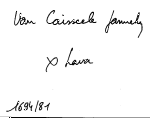 Van Caisseele fannely
x Lava
1694/81